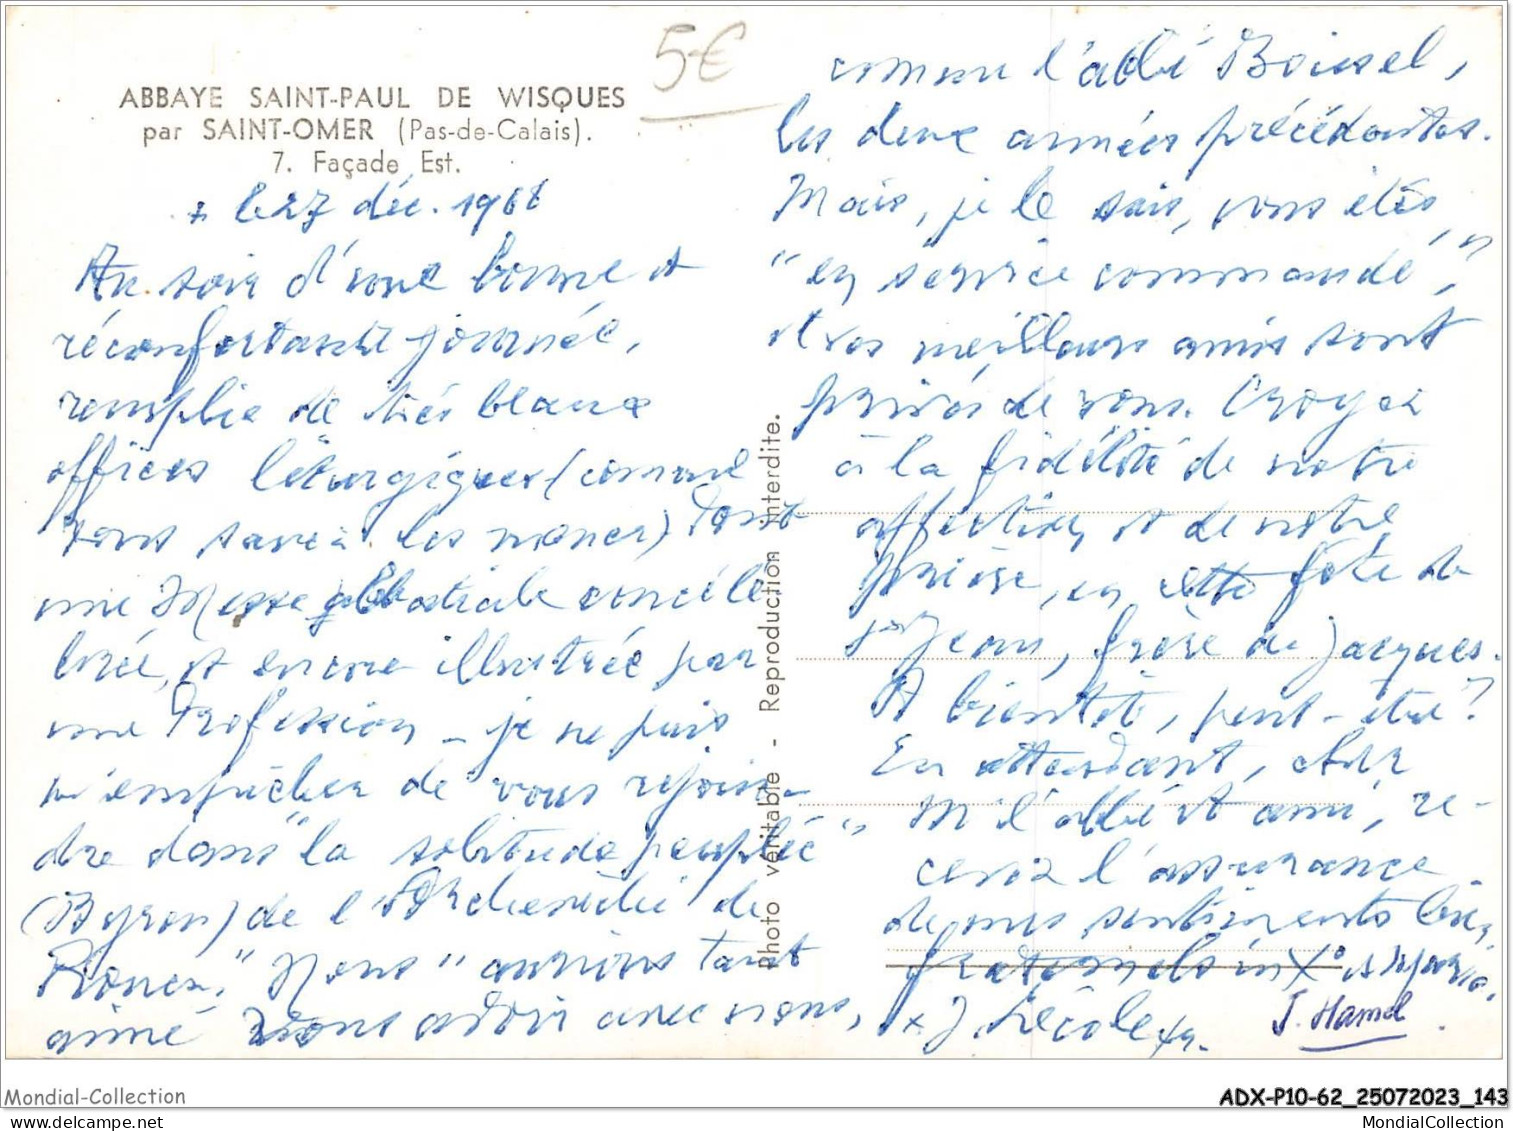 5€
ABBAYE SAINT-PAUL DE WISQUES
par SAINT-OMER (Pas-de-Calais).
7. Façade Est.
+ le 27 déc. 1968
Au soir d'une bonne et
réconfortante journée,
remplie de très beaux
offices liturgiques (comme
vous savez les mener) dont
une Messe concélé-
brée, et encore illustrée par
une Profession - je ne puis
m'empêcher de vous rejoin-
dre dans "la solitude peuplée"
(Byron) de l' de
"Nous" aurions tant
aimé vous avoir avec nous,
comme l'abbé Boissel,
les deux années précédentes.
Mais, je le sais, vous êtes,
"en service commandé",
et vos meilleurs amis sont
privés de vous. Croyez
à la fidélité de notre
affection et de notre
prière, en cette fête de
St Jean, frère de Jacques.
A bientôt, peut-être?
En attendant, cher
M l'abbé et ami, re-
cevez l'assurance
de mes sentiments bien
fraternels in X° et Maria.
+ J. Lécole
J. Hamel
Photo véritable - Reproduction interdite.
Mondial-Collection
ADX-P10-62_25072023_143
delcampe.net
MondialCollection